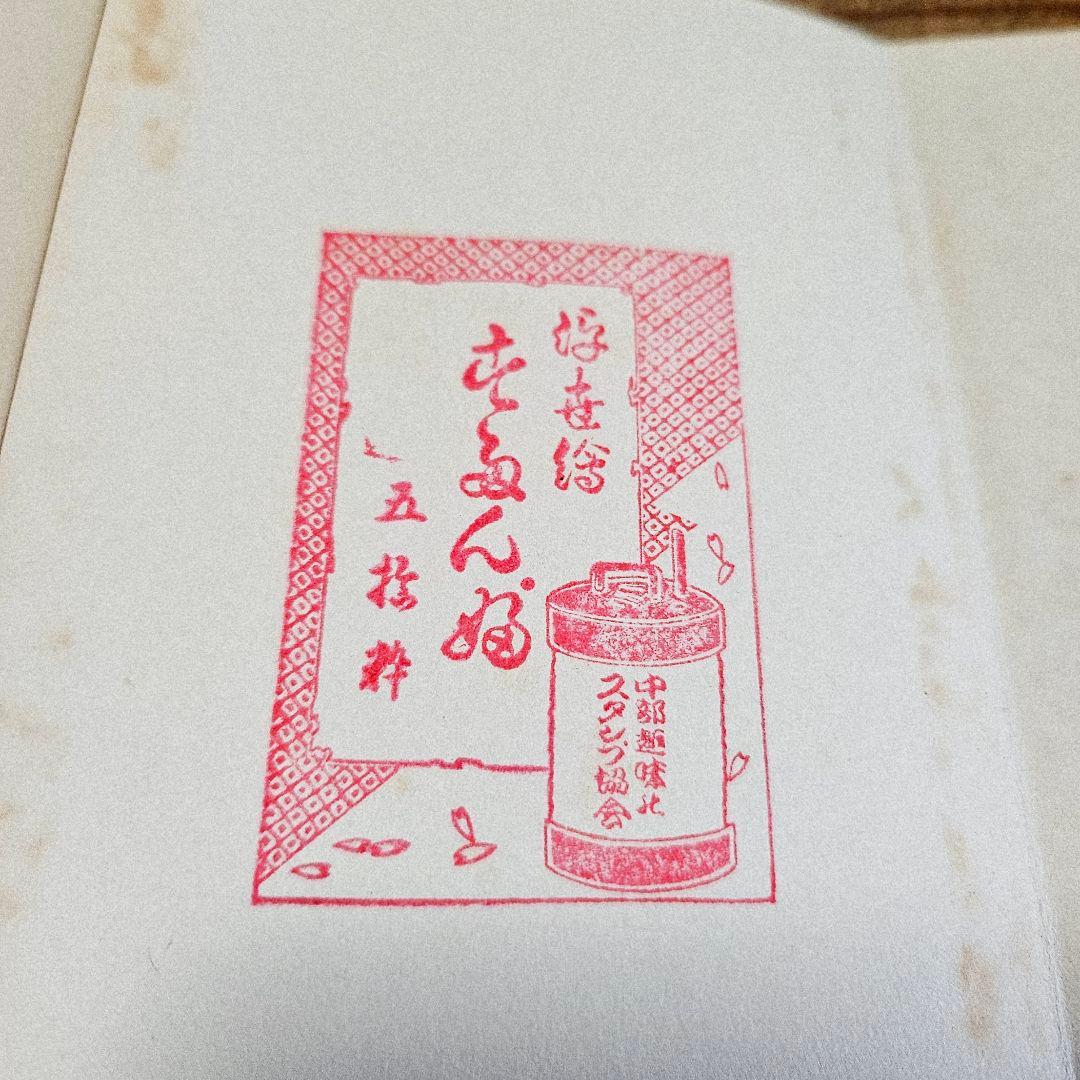 浮世繪
すたんぷ
五拾粹
中部趣味の
スタンプ協会